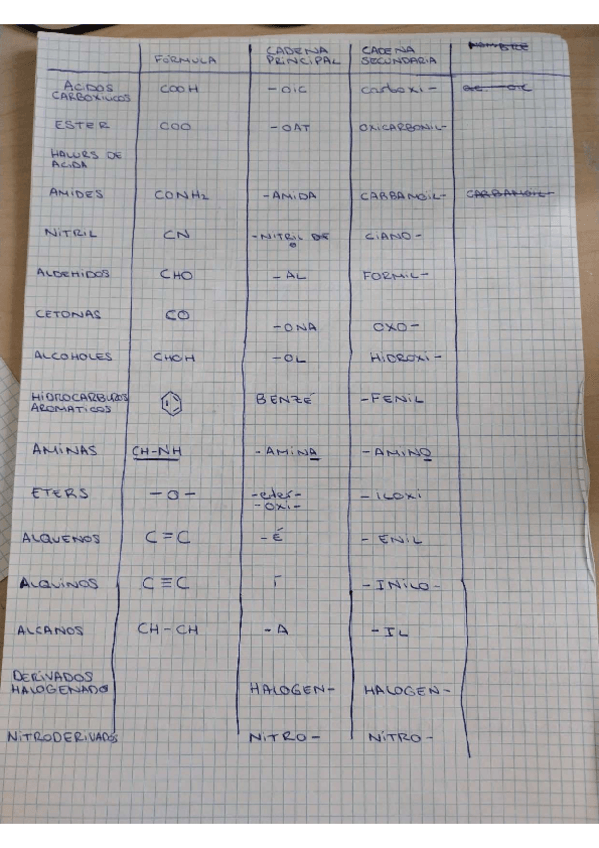 FÓRMULA CADENA PRINCIPAL CADENA SECUNDARIA NOMBRE
ACIDOS CARBOXILICOS COOH -OIC carboxi-
ESTER COO -OAT OXICARBONIL-
HALURS DE ACIDA
AMIDES CONH2 -AMIDA CARBAMOIL- CARBAMOIL-
NITRIL CN -NITRIL DE CIANO-
ALDEHIDOS CHO -AL FORMIL-
CETONAS CO -ONA OXO-
ALCOHOLES CHOH -OL HIDROXI-
HIDROCARBUROS AROMATICOS BENZÉ -FENIL
AMINAS CH-NH -AMINA -AMINO
ETERS -O- -eter- -OXI- -ILOXI
ALQUENOS C=C -É -ENIL
ALQUINOS C≡C Í -INILO-
ALCANOS CH-CH -A -IL
DERIVADOS HALOGENADO HALOGEN- HALOGEN-
NITRODERIVADOS NITRO- NITRO-